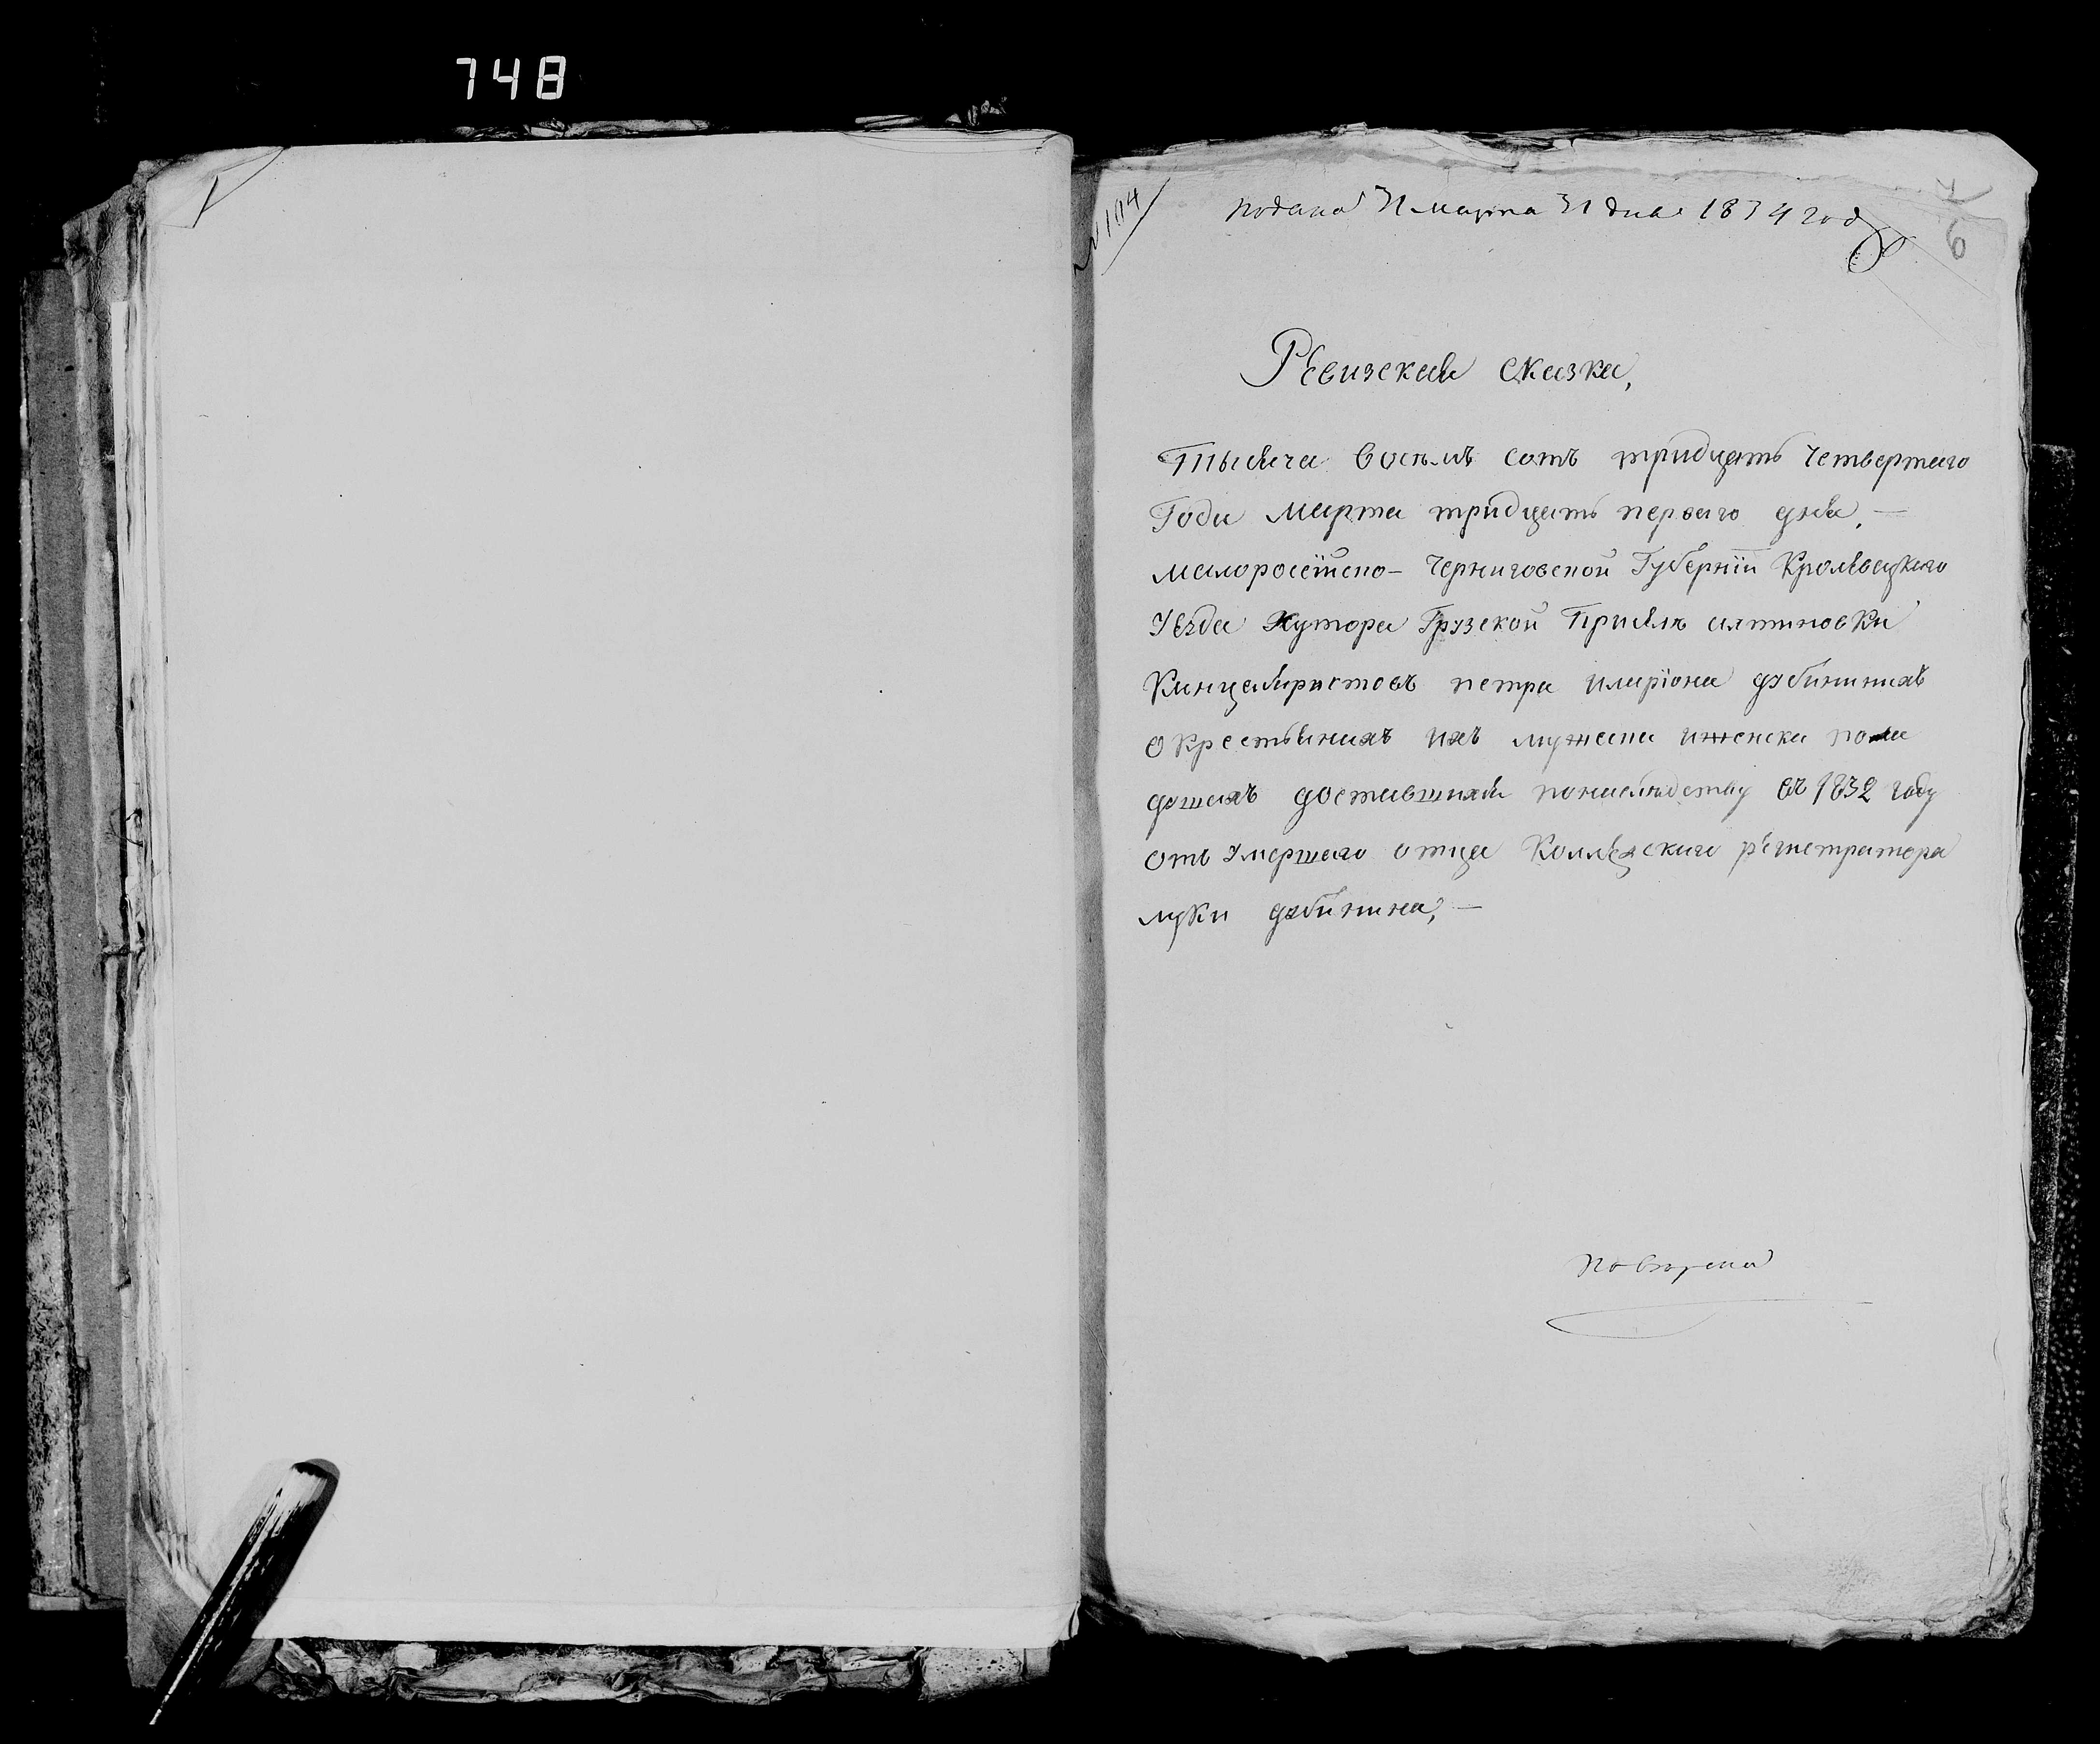 748
№ 104
подана 31 марта 31 дня 1834 год
6
Ревизская сказка,
Тысяча восемь сотъ тридцать четвертаго
Года марта тридцать перваго дня, —
малоросійско- Черниговской Губерніи Кролевецкаго
Уезда Хутора Грузской При селе алтиновки
Канцеляристовъ петра иларіона дубининыхъ
о крестьянахъ ихъ мужеска иженска пола
душахъ доставшихся понаследству въ 1832 году
отъ умершаго отца Коллежскаго регистратора
луки дубинина, —
поверена